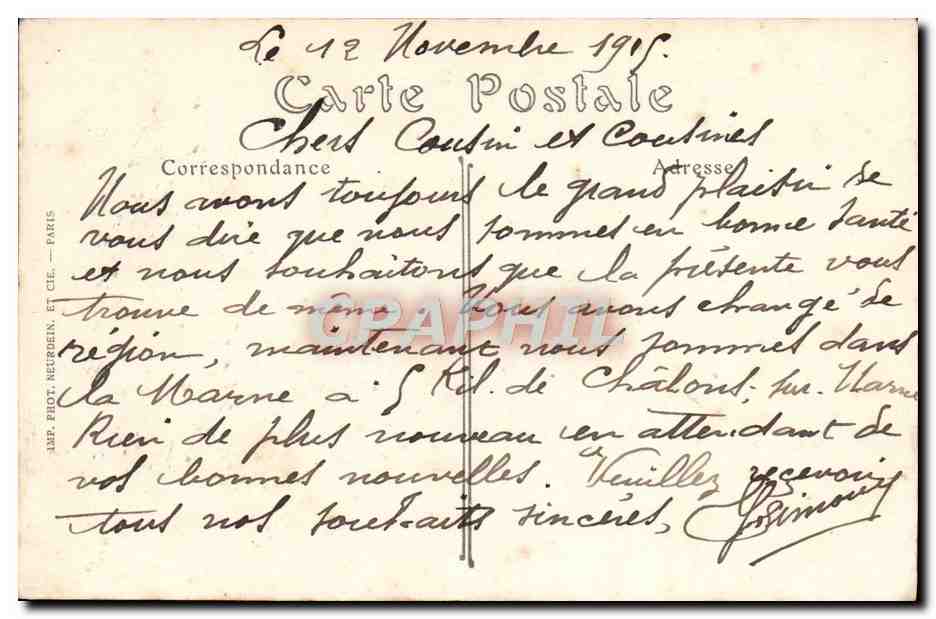 Le 12 Novembre 1915.
Carte Postale
Chers Cousin et Cousines
Correspondance
Adresse
Nous avons toujours le grand plaisir de
vous dire que nous sommes en bonne santé
et nous souhaitons que la présente vous
trouve de même. Nous avons changé de
région, maintenant nous sommes dans
la Marne à 5 Kil. de Châlons, sur. Marne
Rien de plus nouveau en attendant de
vos bonnes nouvelles. Veuillez recevoir
tous nos souhaits sincères,
IMP. PHOT. NEURDEIN. ET CIE. — PARIS
CPAPHIL